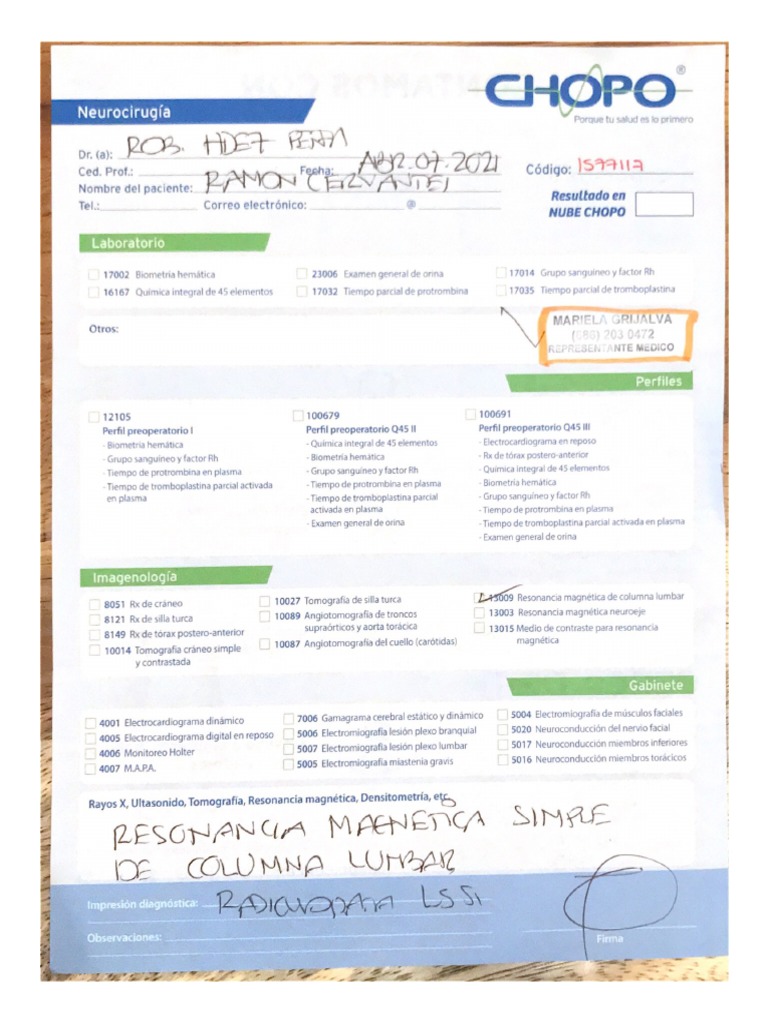 CHOPO®
Porque tu salud es lo primero
Neurocirugía
Dr. (a): ROB. HDEZ PEÑA
Ced. Prof.: Fecha: ABR. 07. 2021 Código: 1599117
Nombre del paciente: RAMON CERVANTES
Tel.: Correo electrónico: @
Resultado en
NUBE CHOPO
Laboratorio
17002 Biometría hemática 23006 Examen general de orina 17014 Grupo sanguíneo y factor Rh
16167 Química integral de 45 elementos 17032 Tiempo parcial de protrombina 17035 Tiempo parcial de tromboplastina
Otros:
MARIELA GRIJALVA
(686) 203 0472
REPRESENTANTE MEDICO
Perfiles
12105
Perfil preoperatorio I
- Biometría hemática
- Grupo sanguíneo y factor Rh
- Tiempo de protrombina en plasma
- Tiempo de tromboplastina parcial activada
en plasma
100679
Perfil preoperatorio Q45 II
- Química integral de 45 elementos
- Biometría hemática
- Grupo sanguíneo y factor Rh
- Tiempo de protrombina en plasma
- Tiempo de tromboplastina parcial
activada en plasma
- Examen general de orina
100691
Perfil preoperatorio Q45 III
- Electrocardiograma en reposo
- Rx de tórax postero-anterior
- Química integral de 45 elementos
- Biometría hemática
- Grupo sanguíneo y factor Rh
- Tiempo de protrombina en plasma
- Tiempo de tromboplastina parcial activada en plasma
- Examen general de orina
Imagenología
8051 Rx de cráneo
8121 Rx de silla turca
8149 Rx de tórax postero-anterior
10014 Tomografía cráneo simple
y contrastada
10027 Tomografía de silla turca
10089 Angiotomografía de troncos
supraórticos y aorta torácica
10087 Angiotomografía del cuello (carótidas)
13009 Resonancia magnética de columna lumbar
13003 Resonancia magnética neuroeje
13015 Medio de contraste para resonancia
magnética
Gabinete
4001 Electrocardiograma dinámico
4005 Electrocardiograma digital en reposo
4006 Monitoreo Holter
4007 M.A.P.A.
7006 Gamagrama cerebral estático y dinámico
5006 Electromiografía lesión plexo branquial
5007 Electromiografía lesión plexo lumbar
5005 Electromiografía miastenia gravis
5004 Electromiografía de músculos faciales
5020 Neuroconducción del nervio facial
5017 Neuroconducción miembros inferiores
5016 Neuroconducción miembros torácicos
Rayos X, Ultasonido, Tomografía, Resonancia magnética, Densitometría, etc.
RESONANCIA MAGNETICA SIMPLE
DE COLUMNA LUMBAR
Impresión diagnóstica: L5S1
Observaciones:
Firma